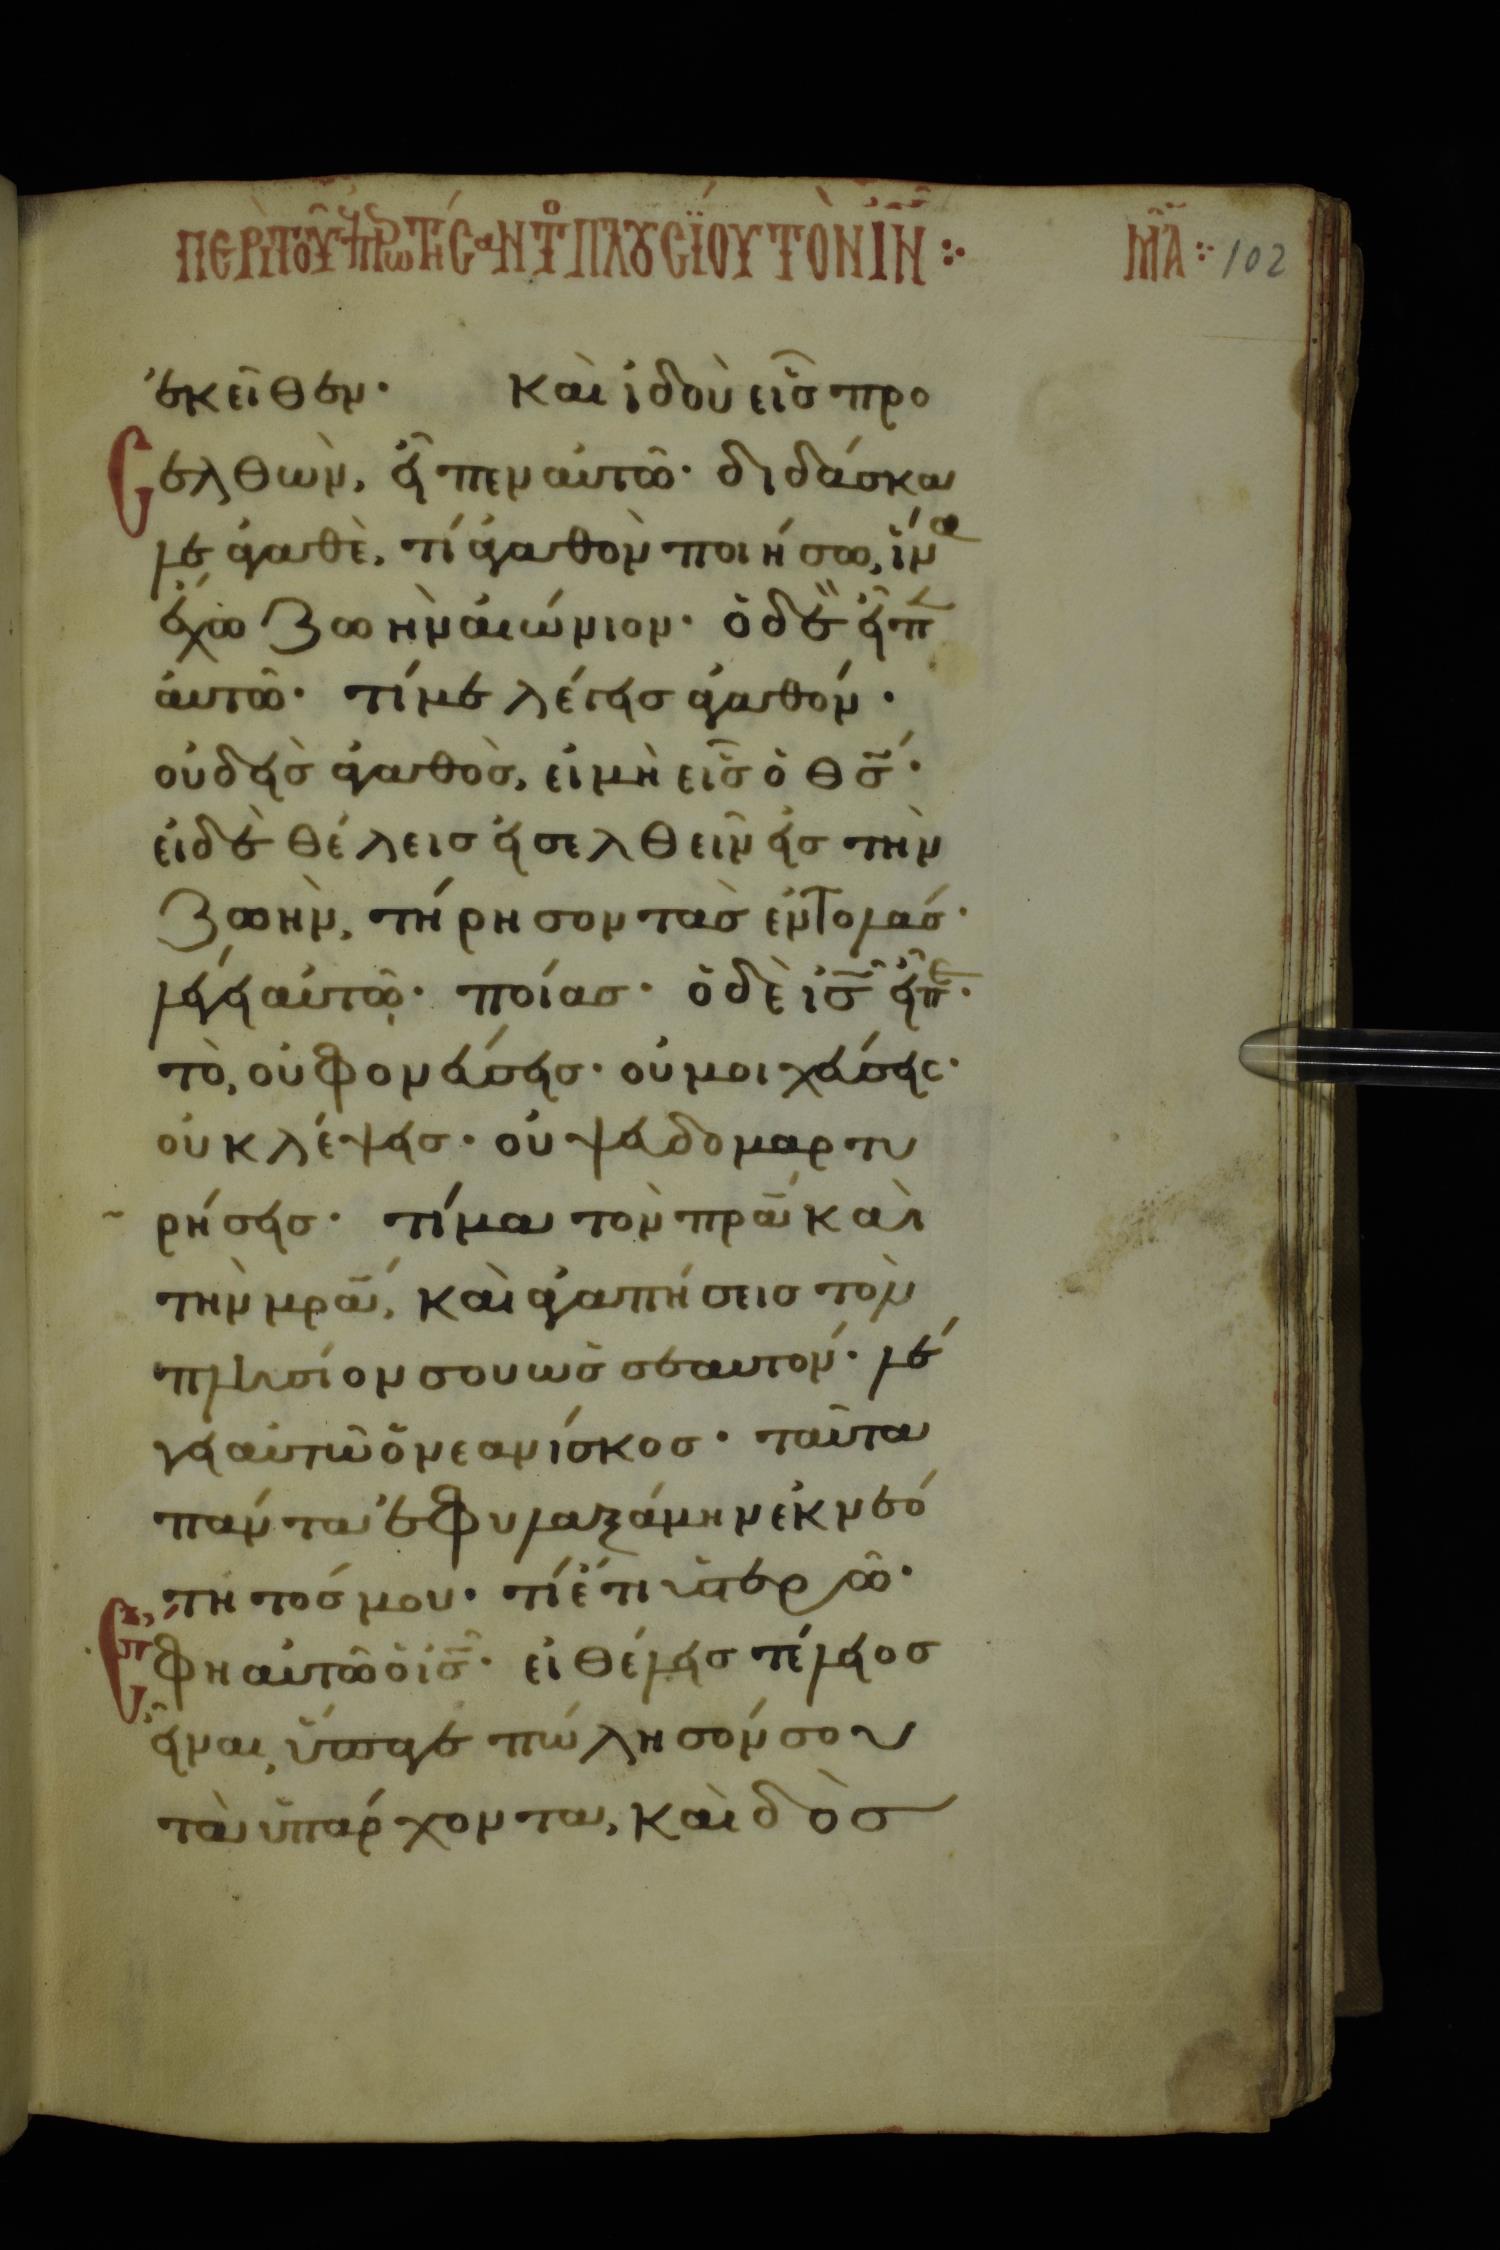 ΠΕΡῚ ΤΟΥ͂ ἘΠΕΡΩΤΉCΑΝΤΟC ΠΛΟΥCΪ́ΟΥ ΤῸΝ ΙΝ ⁘ ΜΑ ⁘ 102
ἐκεῖθεν· Καὶ ἰδοὺ εἷσ προ
ελθὼν, εἶπεν αὐτῶ· διδάσκα
λε ἀγαθὲ, τί ἀγαθὸν ποιήσω, ἵνα
ἔχω ζωὴν αἰώνιον· ὁ δὲ εἶπ
αὐτῶ· τί με λέγεισ ἀγαθόν·
οὐδεὶσ ἀγαθὸσ, εἰ μὴ εἷσ ὁ θσ·
εἰ δὲ θέλεισ εἰσελθεῖν εἰσ τὴν
ζωὴν, τήρησον τὰσ ἐντολάσ·
λέγει αὐτῶ· ποίασ· ὁ δὲ ισ εἶπε·
τὸ, οὐ φονεύσεισ· οὐ μοιχεύσεισ·
οὐ κλέψεισ· οὐ ψευδομαρτυ
ρήσεισ· τίμα τὸν πρα καὶ
τὴν μρα, καὶ ἀγαπήσεισ τὸν
πλησίον σου ὡσ σεαυτόν· λέ
γει αὐτῶ ὁ νεανίσκοσ· ταῦτα
πάντα ἐφυλαξάμην ἐκ νεό
τητόσ μου· τί ἔτι ὑστερῶ·
Ἔφη αὐτῶ ὁ ισ· εἰ θέλεισ τέλειοσ
εἶναι, ὕπαγε πώλησόν σου
τὰ ὑπάρχοντα, καὶ δὸσ